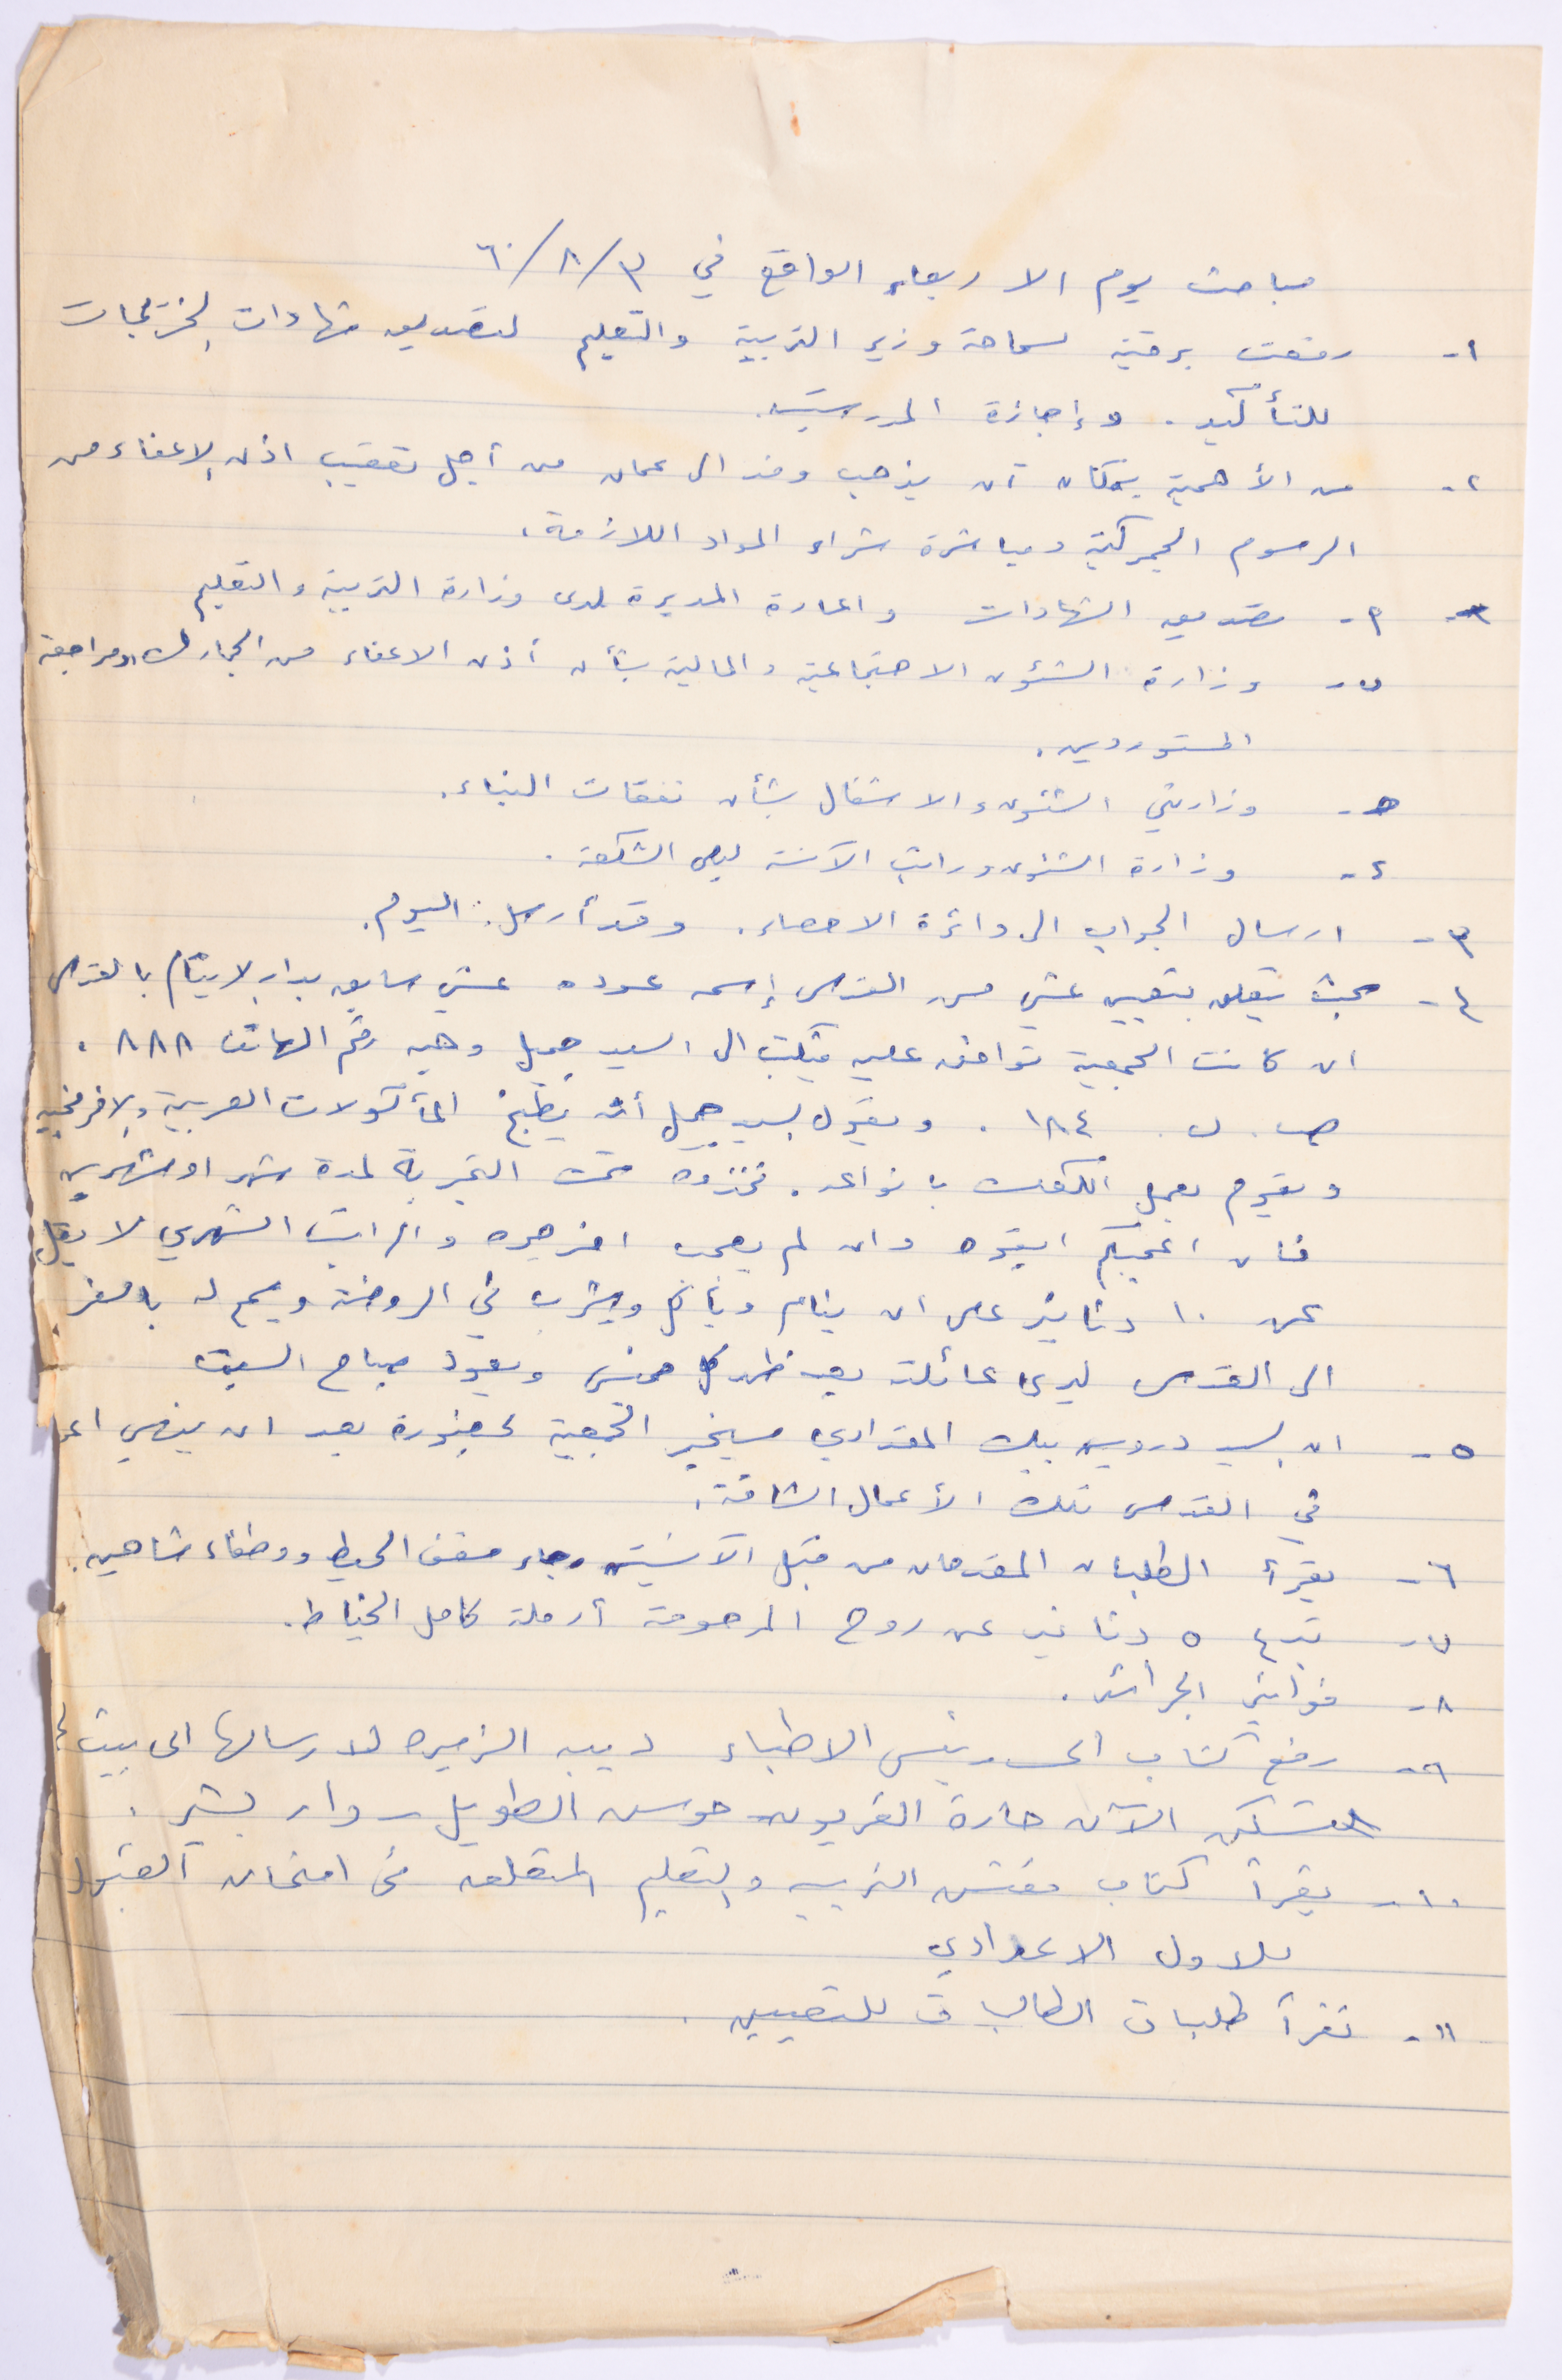 مباحث يوم الاربعاء الواقع في ٣/٨/٦٠
١- رفعت برقية لسماحة وزير التربية والتعليم لتصديق شهادات الخريجات
للتأكيد. وإجازة المدرستين.
٢- من الأهمية بمكان أن يذهب وفد الى عمان من أجل تعقيب اذن الاعفاء من
الرسوم الجمركية ومباشرة شراء المواد اللازمة.
٢- تصديق الشهادات واعارة المديرة لدى وزارة التربية والتعليم
ب- وزارة الشئون الاجتماعية والمالية بشأن أذن الاعفاء من الجمارك، ومراجعة
المستوردين.
ح- وزارتي الشئون والاشغال بشأن نفقات البناء.
د- وزارة الشئون وراتب الآنسة ليلى الشكعة.
٣- ارسال الجواب الى دائرة الاحصاء. وقد أرسل اليوم.
٤- بحث يتعلق بتعيين عشي من القدس إسمه عوده عشي سابق بدار الايتام بالقدس
ان كانت الجمعية توافق عليه فيكتب الى السيد جميل وهبه رقم الهاتف ٨٨٨.
ص. ب. ١٨٤. ويقول السيد جميل أنه يطبخ المأكولات العربية والافرنجية
ويقوم بعمل الكعك بانواعه. فخذوه تحت التجربة لمدة شهر او شهرين
فان اعجبكم ابقوه وان لم يعجب اخرجوه والراتب الشهري لا يقل
عن ١٠ دنانير على ان ينام ويأكل ويشرب في الروضة ويسمح له بالسفر
الى القدس ليرى عائلته بعد ظهر كل خميس ويعود صباح السبت
٥- ان السيد درويش بيك المقدادي سيخبر الجمعية بحضوره بعد ان ينهي
في القدس تلك الأعمال الشاقة.
٦- يقرأ الطلبان المقدمان من قبل الآنستين رجاء سقف الحيط ووظفاء شاهين.
٧- تبرع ٥ دنانير عن روح المرحومة أرملة كامل الخياط.
٨- فواتير الجرائد.
٩- رفع كتاب الى رئيس الاطباء ديبه الزميره لارسالها الى بيت
تسكن الآن حارة القريون حوش الطويل - دار بشير.
١٠- يقرأ كتاب مفتش التربية والتعليم المتعلق في امتحان القبول
للاول الاعدادي
١١- تقرأ طلبات الطالبات للتعيين.